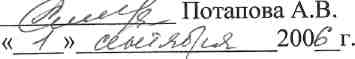 Потапова А.В.
« 1 » сентября 2006 г.